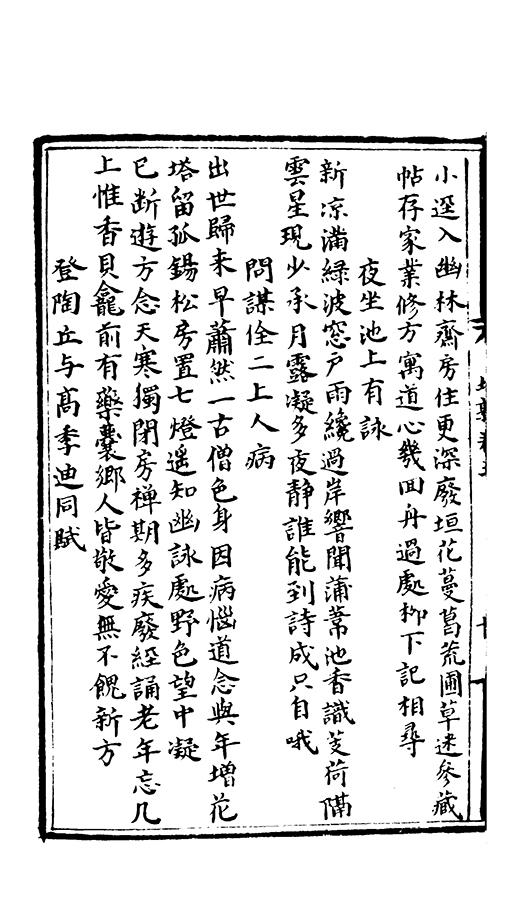 小逕入幽林齋房住更深廢垣花蔓菖荒圃草迷參藏
帖存家業修方寓道心幾回舟過處柳下記相尋
夜坐池上有詠
新凉滿綠波窓戶雨纔過岸響聞蒲葦池香識芰荷隔
雲星現少承月露凝多夜靜誰能到詩成只自哦
問謀佺二上人病
出世歸来早蕭然一古僧色身因病惱道念與年增花
塔留孤錫松房置七燈遥知幽詠處野色望中凝
已断遊方念天寒獨閉房禅期多疾廢經誦老年忘几
上惟香貝龕前有藥囊鄉人皆敬愛無不餽新方
登陶丘与髙季迪同賦